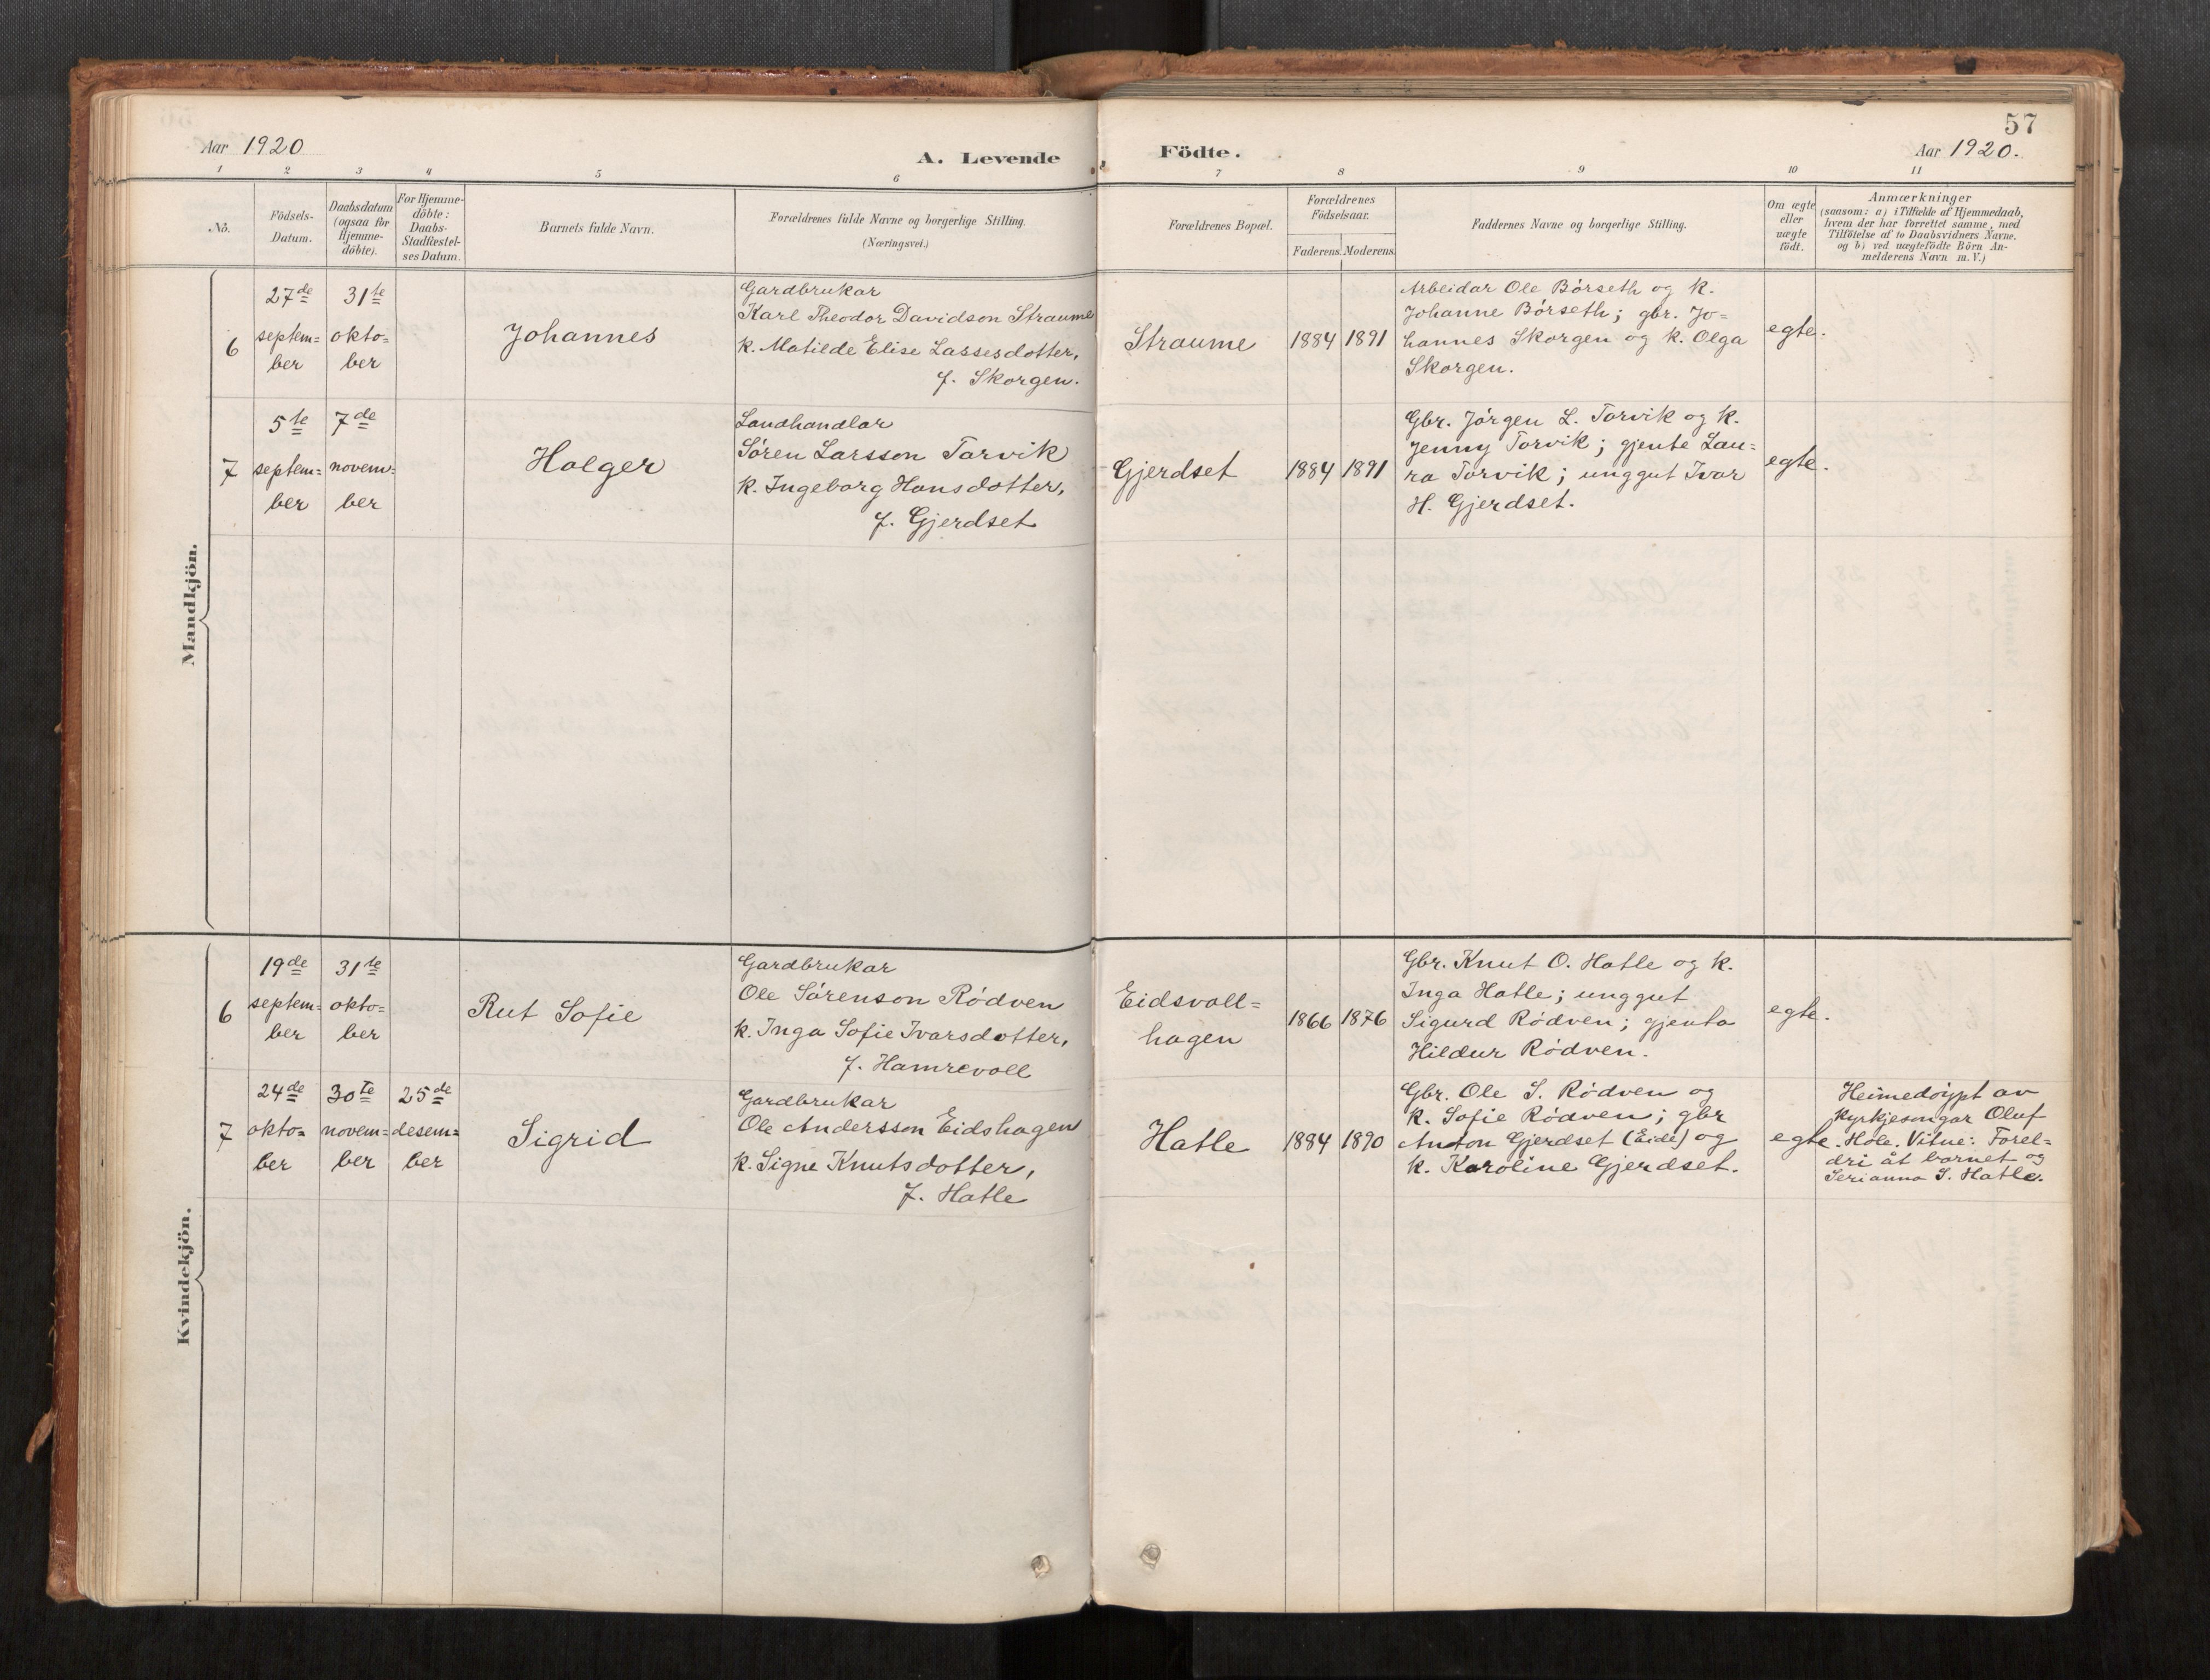 57
Aar 1920
A. Levende
Födte.
Aar 1920.
1
2
3
4
5
6
7
8
9
10
11
No.
Födsels-
Datum.
Daabsdatum
(ogsaa for
Hjemme-
döbte).
For Hjemme-
döbte:
Daabs-
Stadfæstel-
ses Datum.
Barnets fulde Navn.
Forældrenes fulde Navne og borgerlige Stilling.
(Næringsvei.)
Forældrenes Bopæl.
Forældrenes
Födselsaar.
Faderens.
Moderens.
Faddernes Navne og borgerlige Stilling.
Om ægte
eller
uægte
födt.
Anmærkninger
(saasom: a) i Tilfælde af Hjemmedaab,
hvem der har forrettet samme, med
Tilföielse af to Daabsvidners Navne,
og b) ved uægtefödte Börn An-
melderens Navn m. V.)
Mandkjön.
6
27de
septem=
ber
31te
okto=
ber
Johannes
Gardbrukar
Karl Theodor Davidson Straume
k. Matilde Elise Lassesdotter,
f. Skorgen.
Straume
1884
1891
Arbeidar Ole Börseth og k.
Johanne Börseth; gbr. Jo=
hannes Skorgen og k. Olga
Skorgen.
egte.
7
5te
septem=
ber
7de
novem=
ber
Holger
Landhandlar
Sören Larsson Torvik
k. Ingeborg Hansdotter,
f. Gjerdset
Gjerdset
1884
1891
Gbr. Jörgen L. Torvik og k.
Jenny Torvik; gjente Lau=
ra Torvik; unggut Ivar
H. Gjerdset.
egte.
Kvindekjön.
6
19de
septem=
ber
31te
okto=
ber
Rut Sofie
Gardbrukar
Ole Sörenson Rödven
k. Inga Sofie Ivarsdotter,
f. Hamrevoll
Eidsvoll=
hagen
1866
1876
Gbr. Knut O. Hatle og k.
Inga Hatle; unggut
Sigurd Rödven; gjenta
Hildur Rödven.
egte.
7
24de
okto=
ber
30te
novem=
ber
25de
desem=
ber
Sigrid
Gardbrukar
Ole Andersson Eidshagen
k. Signe Knutsdotter,
f. Hatle
Hatle
1884
1890
Gbr. Ole S. Rödven og
k. Sofie Rödven; gbr
Anton Gjerdset (Eide) og
k. Karoline Gjerdset.
egte.
Heimedöypt av
kyrkjesongar Oluf
Hole. Vitne: Forel=
dri åt barnet og
Serianna S. Hatle.